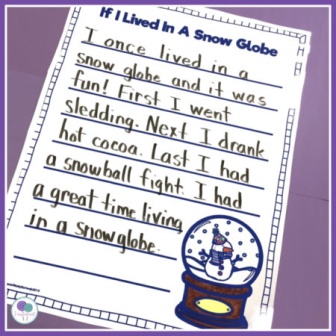 If I Lived In A Snow Globe
I once lived in a
snow globe and it was
fun! First I went
sledding. Next I drank
hot cocoa. Last I had
a snowball fight. I had
a great time living
in a snowglobe.